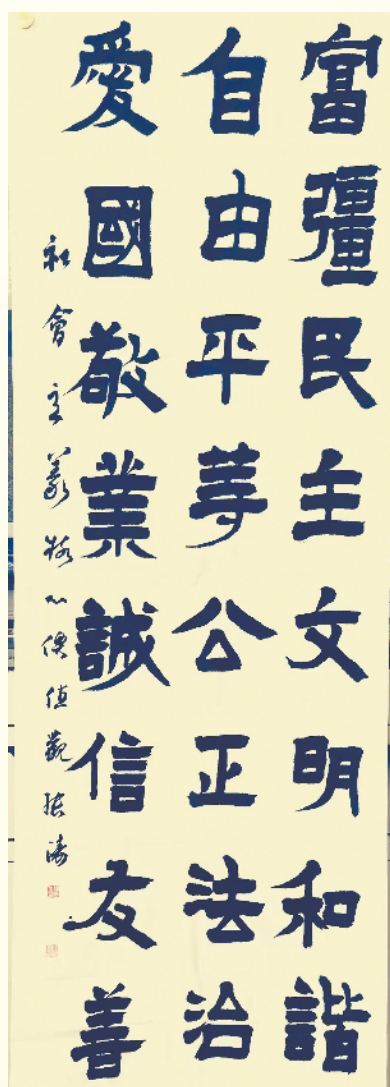 富彊民主文明和諧
自由平等公正法治
愛國敬業誠信友善
社會主義核心價值觀 張濤